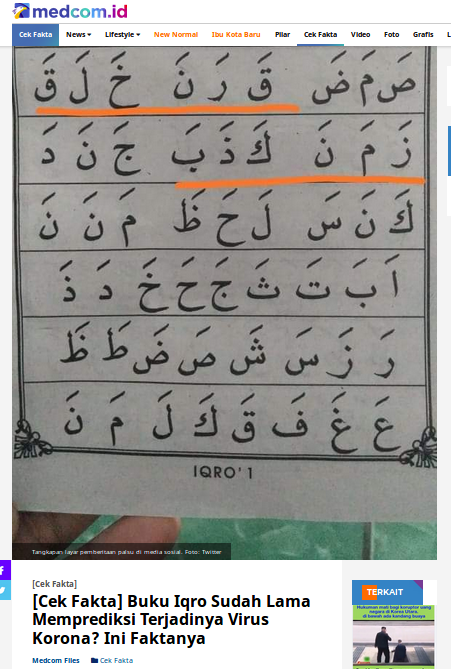 medcom.id
Cek Fakta News Lifestyle New Normal Ibu Kota Baru Pilar Cek Fakta Video Foto Grafis L
صَ مَ ضَ قَ رَ نَ خَ لَ قَ
زَ مَ نَ كَ ذَ بَ جَ نَ دَ
كَ نَ سَ لَ حَ ظَ مَ نَ نَ
اَ بَ تَ ثَ جَ حَ خَ دَ ذَ
رَ زَ سَ شَ صَ ضَ طَ ظَ
عَ غَ فَ قَ كَ لَ مَ نَ
IQRO' 1
Tangkapan layar pemberitaan palsu di media sosial. Foto: Twitter
[Cek Fakta]
[Cek Fakta] Buku Iqro Sudah Lama
Memprediksi Terjadinya Virus
Korona? Ini Faktanya
Medcom Files Cek Fakta
TERKAIT
Hukuman mati bagi koruptor uang
negara di Korea Utara,
di bawah ada kandang buaya